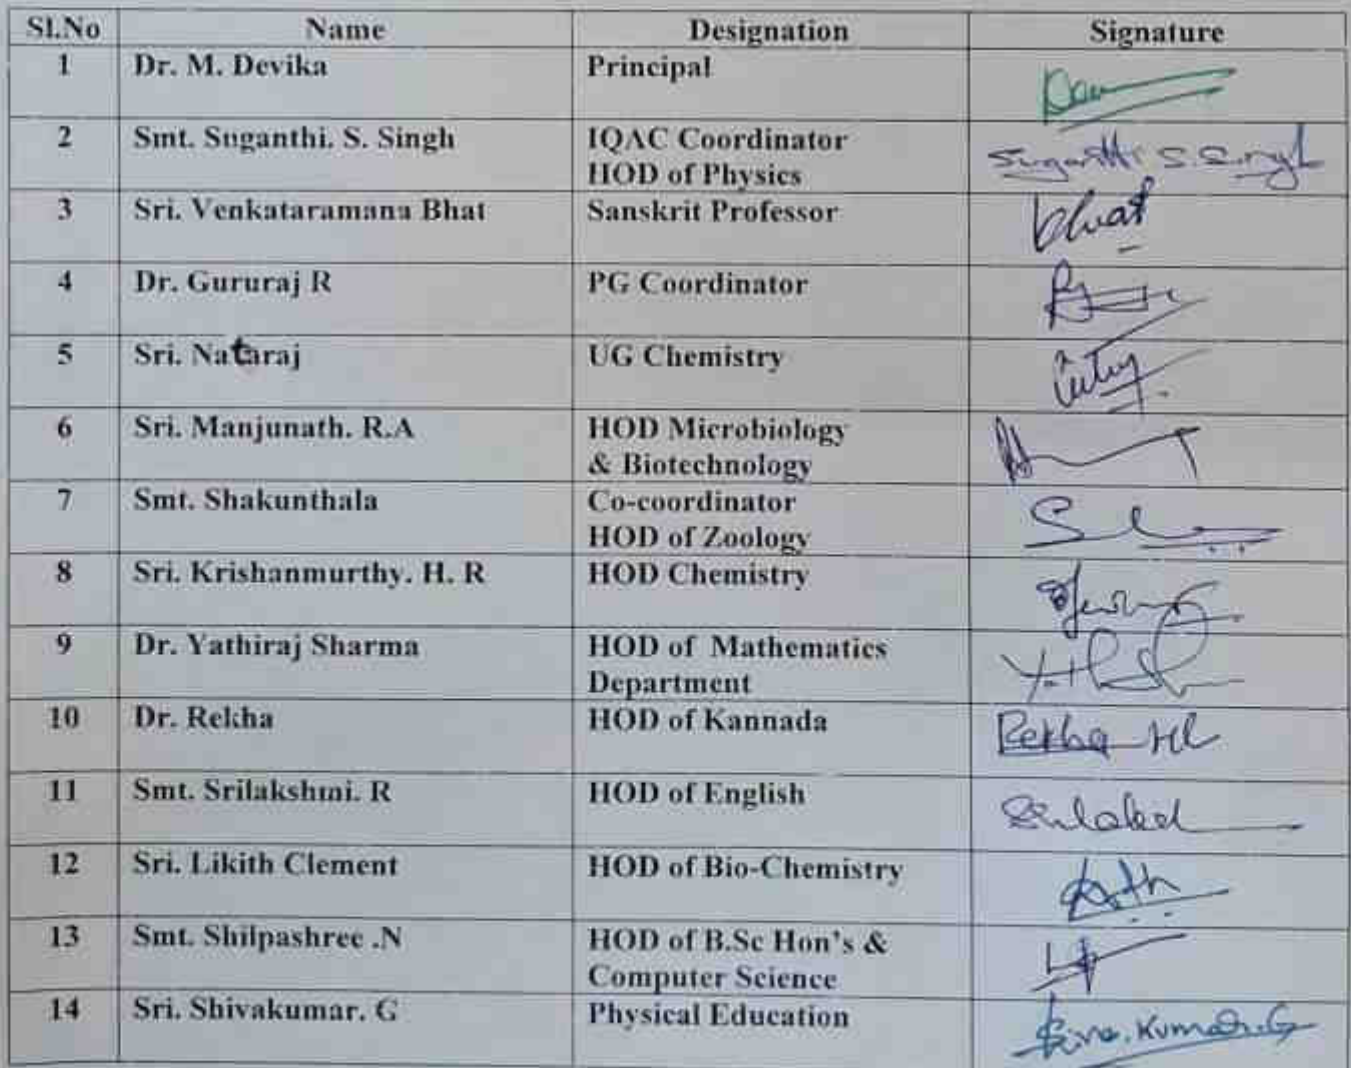 Sl.No Name Designation Signature
1 Dr. M. Devika Principal
2 Smt. Suganthi. S. Singh IQAC Coordinator Suganthi S Singh
HOD of Physics
3 Sri. Venkataramana Bhat Sanskrit Professor Bhat
4 Dr. Gururaj R PG Coordinator
5 Sri. Nataraj UG Chemistry
6 Sri. Manjunath. R.A HOD Microbiology
& Biotechnology
7 Smt. Shakunthala Co-coordinator
HOD of Zoology
8 Sri. Krishanmurthy. H. R HOD Chemistry
9 Dr. Yathiraj Sharma HOD of Mathematics
Department
10 Dr. Rekha HOD of Kannada Rekha
11 Smt. Srilakshmi. R HOD of English
12 Sri. Likith Clement HOD of Bio-Chemistry
13 Smt. Shilpashree .N HOD of B.Sc Hon's &
Computer Science
14 Sri. Shivakumar. G Physical Education Siva.Kumar.G